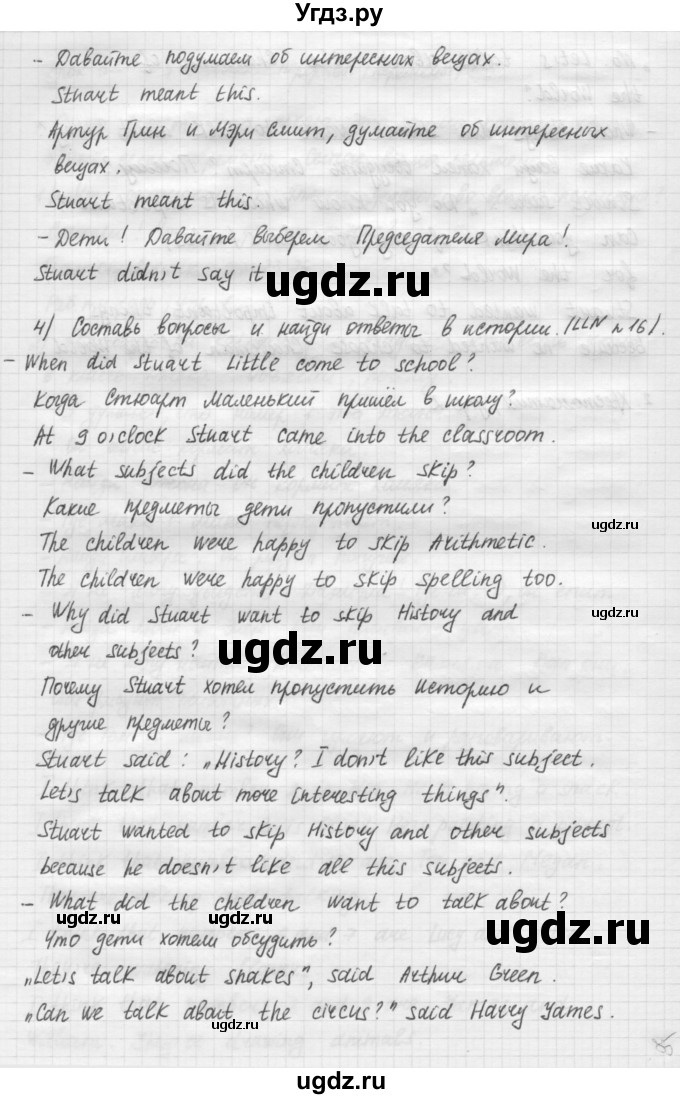 Угдз.ру
- Давайте подумаем об интересных вещах.
Stuart meant this.
Артур Грин и Мэри Смит, думайте об интересных
вещах.
Stuart meant this.
- Дети! Давайте выберем Председателя Мира!
Stuart didn't say it
ugdz.ru
4) Составь вопросы и найди ответы в истории. (LLN №16).
- When did Stuart Little come to school?
Когда Стюарт Маленький пришёл в школу?
At 9 o'clock Stuart came into the classroom.
- What subjects did the children skip?
Какие предметы дети пропустили?
ugdz.ru
The children were happy to skip Arithmetic.
The children were happy to skip spelling too.
- Why did Stuart want to skip History and
ugdz.ru
other subjects?
ugdz.ru
Почему Stuart хотел пропустить Историю и
другие предметы?
Stuart said: „History? I don't like this subject.
Let's talk about more interesting things".
Stuart wanted to skip History and other subjects
because he doesn't like all this subjects.
- What did the children want to talk about?
ugdz.ru ugdz.ru ugdz.ru
Что дети хотели обсудить?
„Let's talk about snakes", said Arthur Green.
„Can we talk about the circus?" said Harry Yames.
ugdz.ru
ugdz.ru